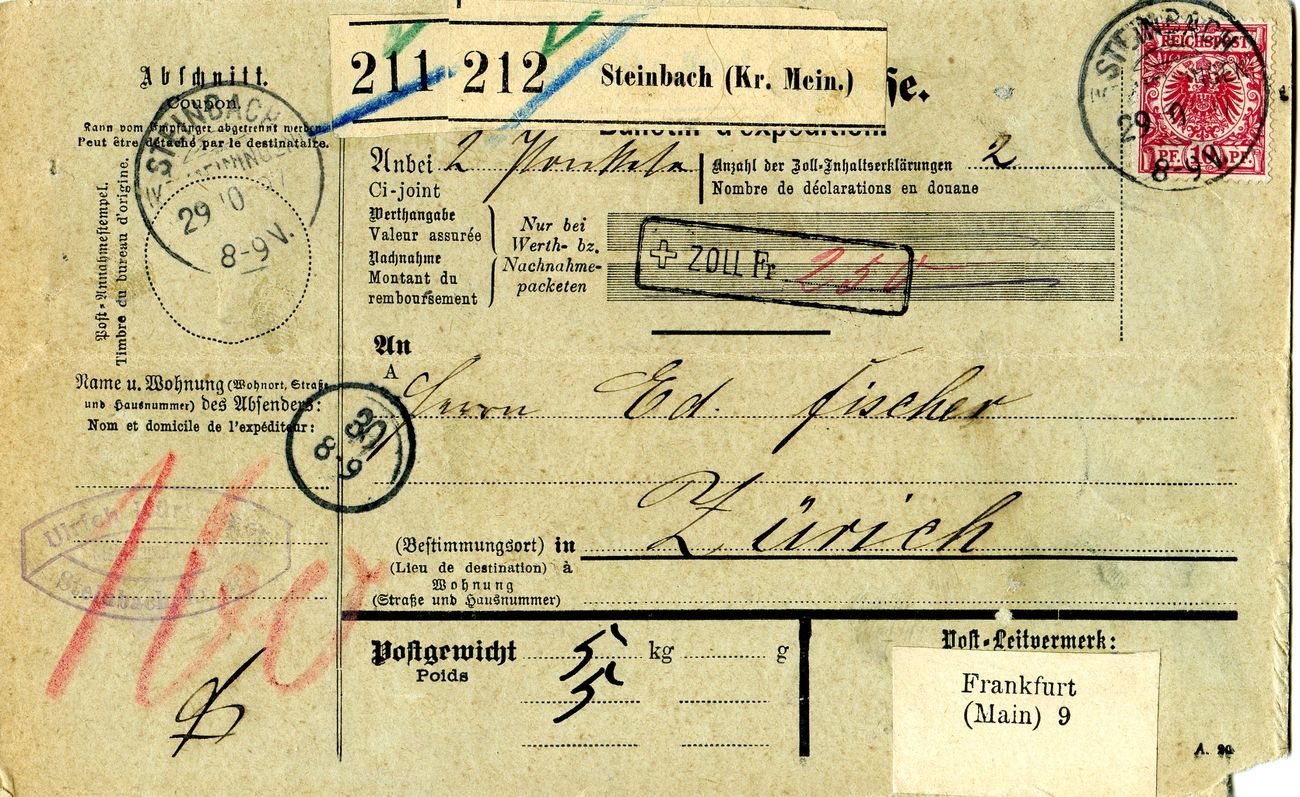 211 212 Steinbach (Kr. Mein.)
se.
Bulletin d'expédition
Abschnitt.
Coupon.
Kann vom Empfänger abgetrennt werden.
Peut être détaché par le destinataire.
STEINBACH
29 10
8-9V.
Post-Annahmestempel.
Timbre du bureau d'origine.
Name u. Wohnung (Wohnort, Straße
und Hausnummer) des Absenders:
Nom et domicile de l'expéditeur:
30
8-9
Ulrich
Steinbach
160
Anbei 2
Ci-joint
Anzahl der Zoll-Inhaltserklärungen 2
Nombre de déclarations en douane
Werthangabe
Valeur assurée
Nachnahme
Montant du
remboursement
Nur bei
Werth- bz.
Nachnahme-
packeten
ZOLL Fr 250
STEINBACH
29 10
8-9V.
REICHSPOST
PF. 10 PF.
An
A
Herrn Ed. Fischer
Zürich
(Bestimmungsort) in
(Lieu de destination) à
Wohnung
(Straße und Hausnummer)
Postgewicht 5 kg g
Poids
5
Post-Leitvermerk:
Frankfurt
(Main) 9